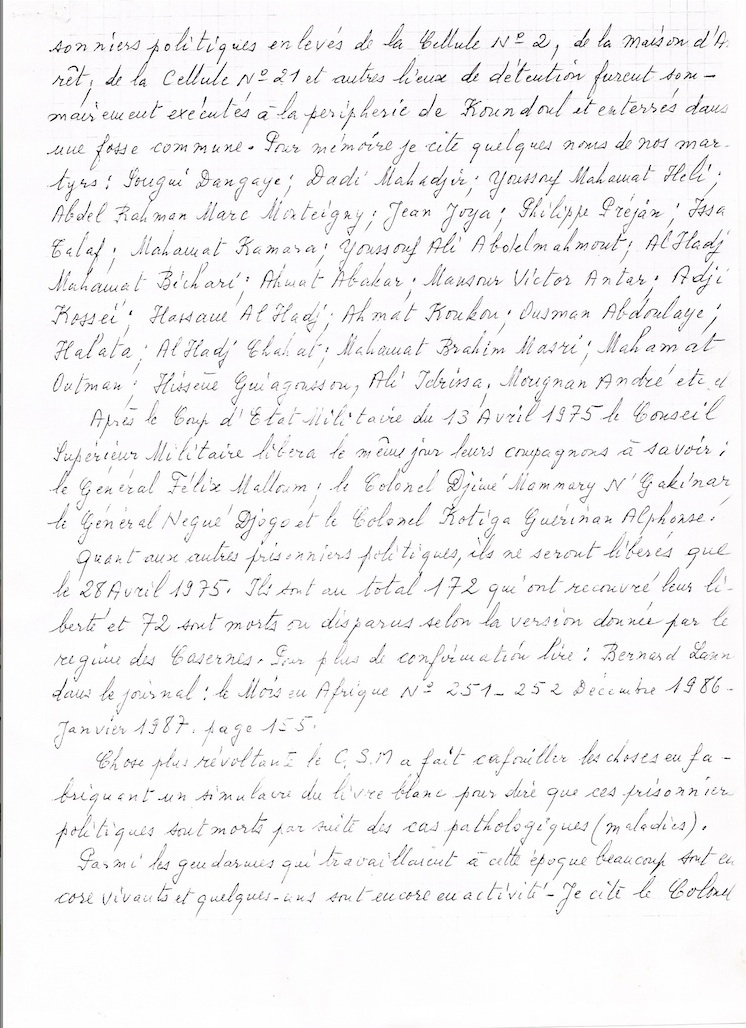 sonniers politiques enlevés de la Cellule Nº 2, de la maison d'A
rêt, de la Cellule Nº 21 et autres lieux de détention furent som-
mairement exécutés à la peripherie de Koundoul et enterrés dans
une fosse commune. Pour mémoire je cite quelques noms de nos mar-
tyrs: Sougui Dangaye; Dadi Mahadjir; Youssouf Mahamat Heli;
Abdel Rahman Marc Monteigny; Jean Joya; Philippe Préjan; Issa
Talaf; Mahamat Kamara; Youssouf Ali Abdelmahmout; Al Hadj
Mahamat Bichari; Ahmat Abakar; Mansour Victor Antar; Adji
Kosseï; Hassane Al Hadj; Ahmat Koukou; Ousman Abdoulaye;
Halata; Al Hadj Chahat; Mahamat Brahim Masri; Mahamat
Outman; Hissène Guiagousson, Ali Idrissa, Mougnan André etc
Après le Coup d'Etat Militaire du 13 Avril 1975 le Conseil
Supérieur Militaire libera le même jour leurs compagnons à savoir:
le Général Félix Malloum; le Colonel Djimé Mammary N'Gakinar
le Général Negué Djogo et le Colonel Kotiga Guérinan Alphonse.
Quant aux autres prisonniers politiques, ils ne seront libérés que
le 28 Avril 1975. Ils sont au total 172 qui ont recouvré leur li-
berté et 72 sont morts ou disparus selon la version donnée par le
regime des Casernes. Pour plus de confirmation lire: Bernard Lann
dans le journal: le Mois en Afrique Nº 251-252 Décembre 1986-
Janvier 1987. page 155.
Chose plus révoltant le C.S.M a fait cafouiller les choses en fa-
briquant un simulacre du livre blanc pour dire que ces prisonnier
politiques sont morts par suite des cas pathologiques (maladies).
Parmi les gendarmes qui travaillaient à cette époque beaucoup sont en
core vivants et quelques-uns sont encore en activité - Je cite le Colonel